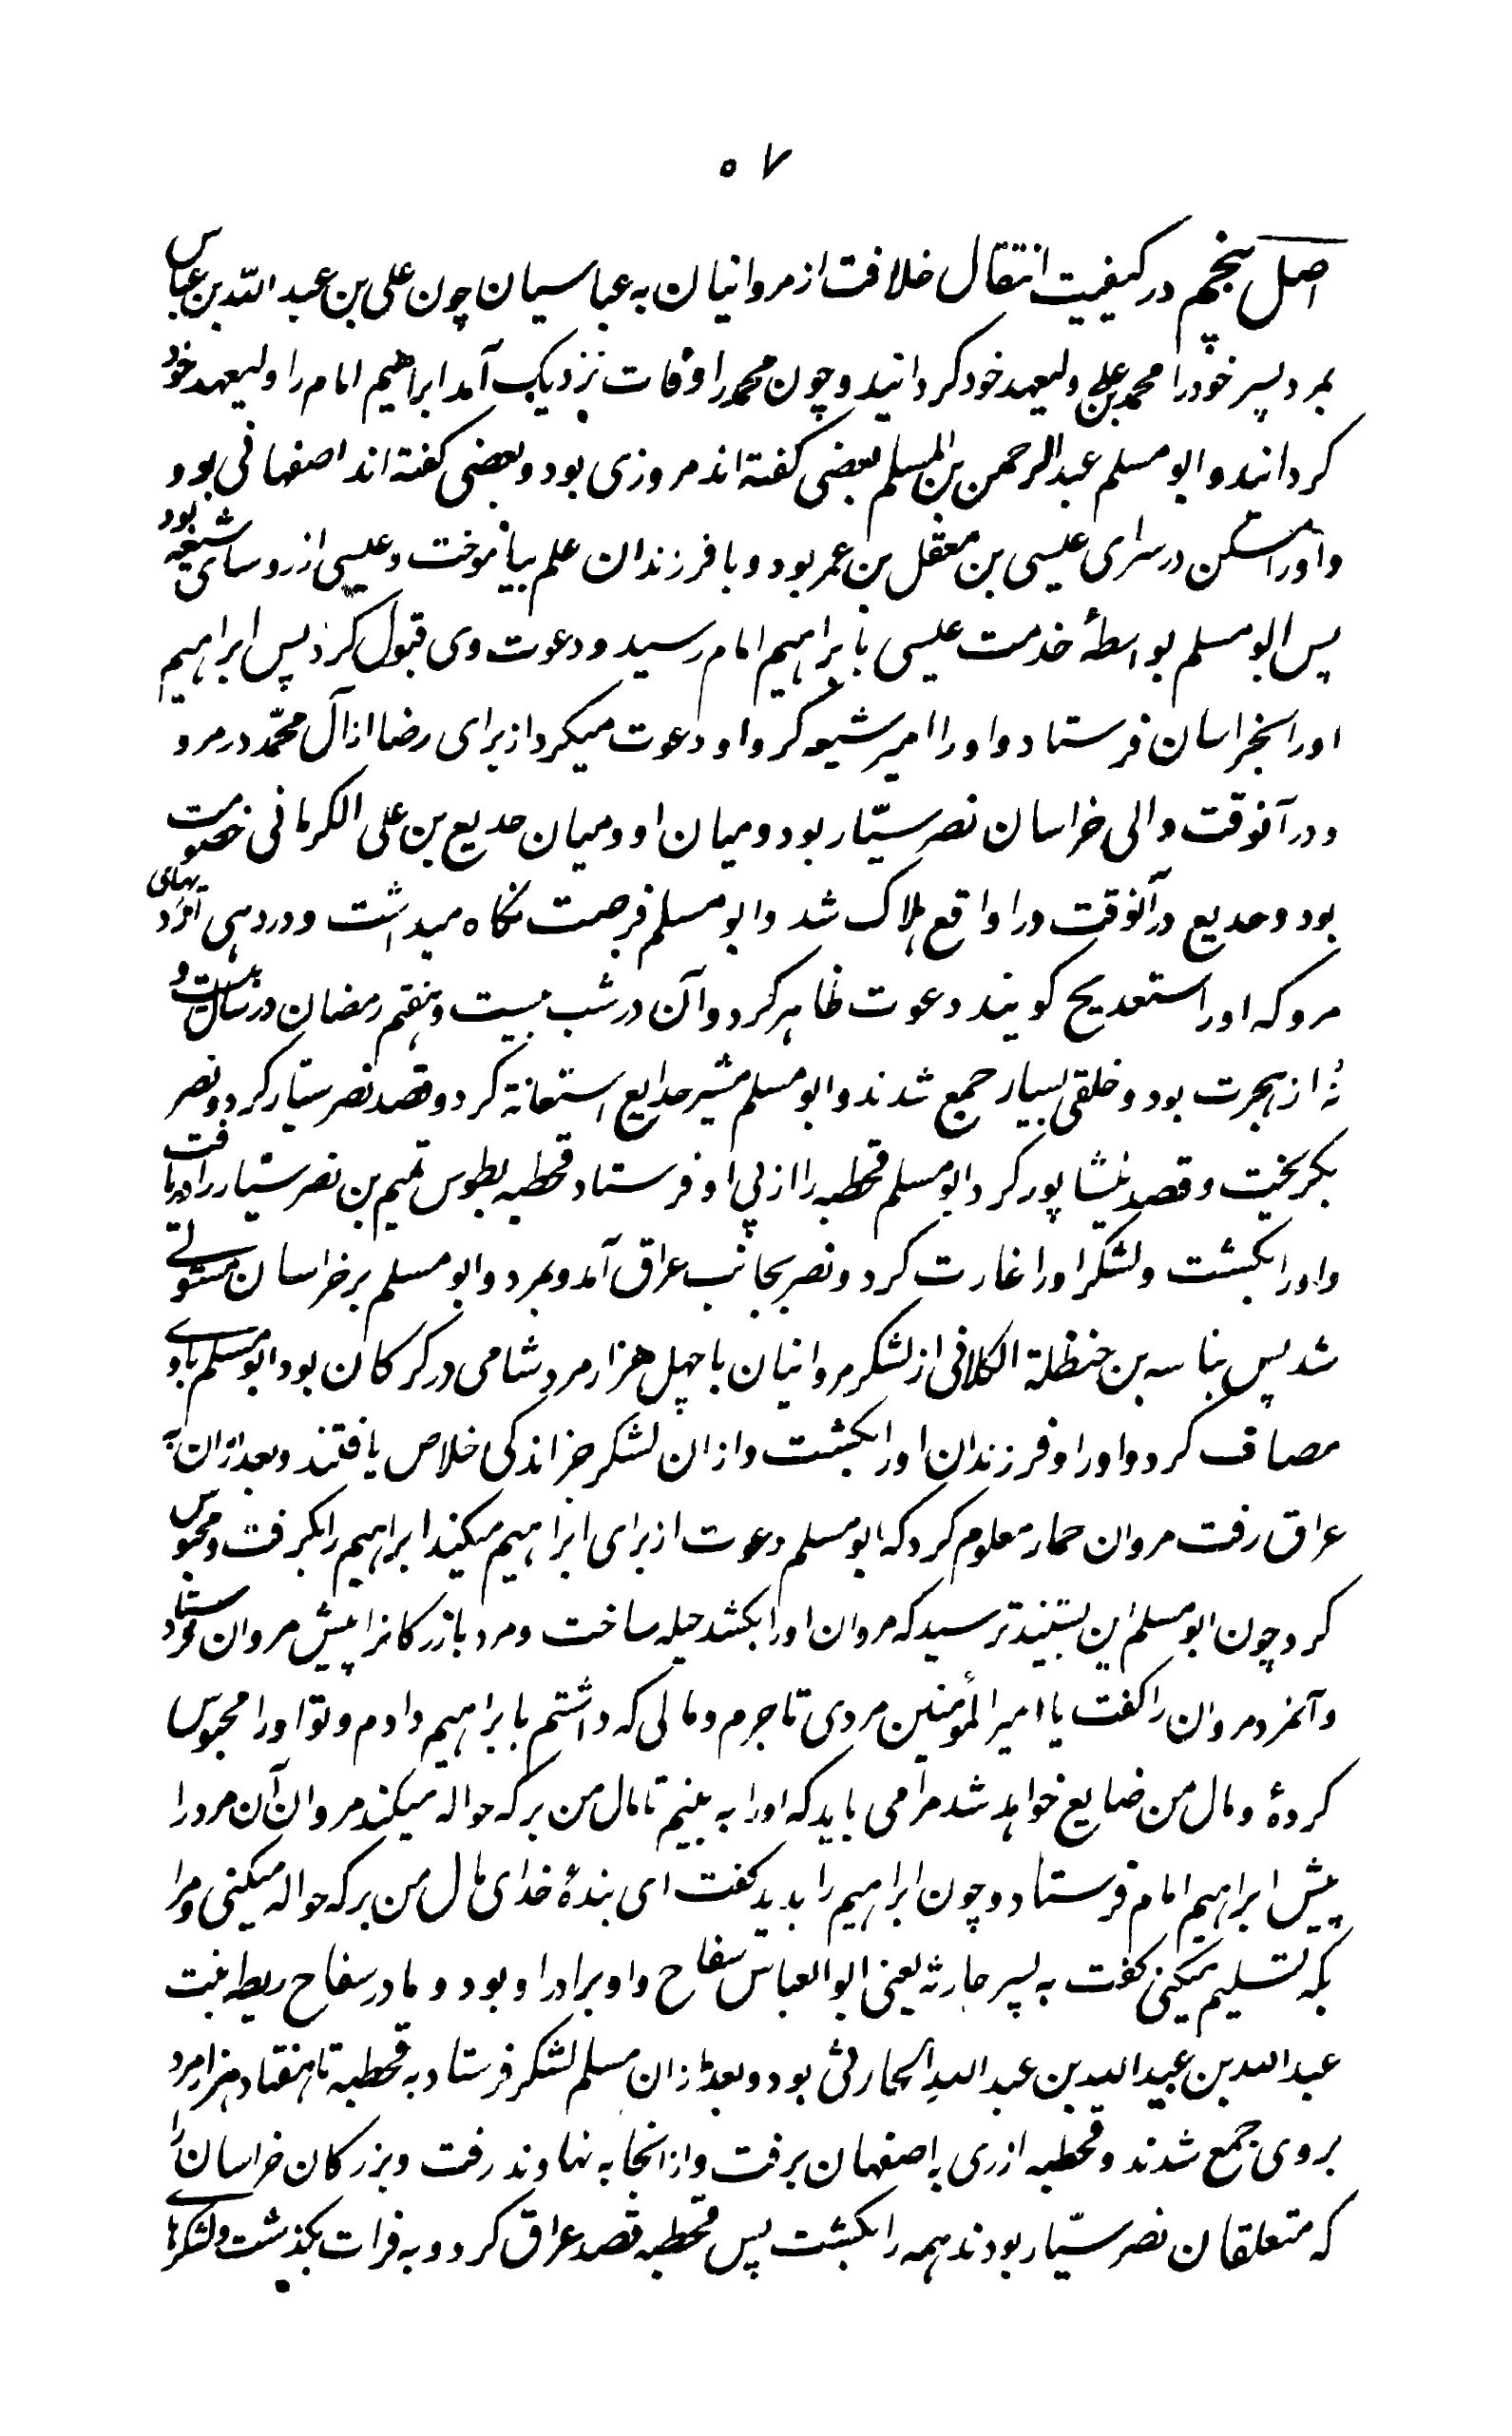 ۵۷
اصل پنجم در کیفیت انتقال خلافت از مروانیان به عباسیان چون علی بن عبد الله بن عباس
بمرد پسر خود را محمد بن علی ولیعهد خود کردانید و چون محمد را وفات نزدیک آمد ابراهیم امام را ولیعهد خود
کردانید و ابو مسلم عبد الرحمن بن المسلم بعضی کفته اند مروزی بود و بعضی کفته اند اصفهانی بود
و او را مسکن در سرای عیسی بن معقل بن عمر بود و با فرزندان علم بیاموخت و عیسی از روسای شیعه بود
پس ابو مسلم بواسطهٔ خدمت عیسی بابراهیم امام رسید و دعوت وی قبول کرد پس ابراهیم
او را بخراسان فرستاد و او را امیر شیعه کرد و او دعوت میکرد از برای رضا از آل محمّد در مرو
و در آنوقت والی خراسان نصر سیّار بود و میان او و میان جدیع بن علی الکرمانی خصومت
بود و جدیع در آنوقت در اواقع هلاک شد و ابو مسلم فرصت نکاه میداشت و در دهی از دیهای
مرو که او را ستعدیح کویند دعوت ظاهر کرد و آن در شب بیست و هفتم رمضان در سال بیست و
نُه از هجرت بود و خلقی بسیار جمع شدند و ابو مسلم مشیر جدایع استعانة کرد و قصد نصر سیّار کرد و نصر
بکریخت و قصد نیشاپور کرد ابو مسلم قحطبه را از پی او فرستاد قحطبه بطوس تمیم بن نصر سیّار را دریافت
و او را بکشت و لشکر او را غارت کرد و نصر بجانب عراق آمد و بمرد و ابو مسلم بر خراسان مستولی
شد پس بناسه بن حنظلة الکلافی از لشکر مروانیان با چهل هزار مرد شامی در کرکان بود ابو مسلم با وی
مصاف کرد و او را و فرزندان او را بکشت و از ان لشکر جز اندکی خلاص یافتند و بعد از ان به
عراق رفت مروان حمار معلوم کرد که ابو مسلم دعوت از برای ابراهیم میکند ابراهیم را بکرفت و محبوس
کرد چون ابو مسلم این بشنید ترسید که مروان او را بکشد حیله ساخت و مرد بازرکانرا پیش مروان فرستاد
و آنمرد مروان را کفت یا امیر المؤمنین مردی تاجرم و مالی که داشتم بابراهیم دادم و تو او را محبوس
کردهٔ و مال من ضایع خواهد شد مرا می باید که او را به بینم تا مال من بر که حواله میکند مروان آن مرد را
پیش ابراهیم امام فرستاد و چون ابراهیم را بدید کفت ای بندهٔ خدای مال من بر که حواله میکنی و مرا
بکه تسلیم میکنی کفت به پسر حارثه یعنی ابو العباس سفاح و او برادر او بود و مادر سفاح ریطه بنت
عبد الله بن عبید الله بن عبد الله الحارثی بود و بعد از ان مسلم لشکر فرستاد به قحطبه تا هفتاد هزار مرد
بر وی جمع شدند و قحطبه از ری به اصفهان برفت و از انجا به نهاوند رفت و بزرکان خراسان را
که متعلقان نصر سیّار بودند همه را بکشت پس قحطبه قصد عراق کرد و به فرات بکذشت و لشکرها